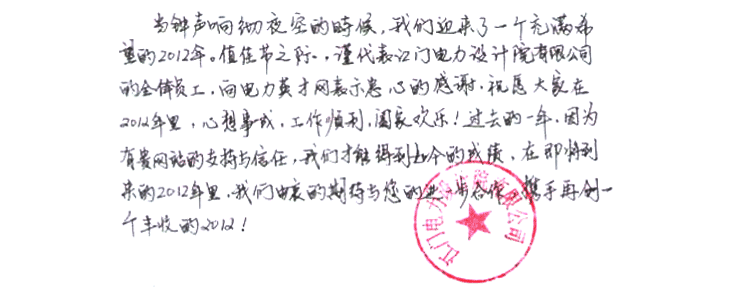 当钟声响彻夜空的时候,我们迎来了一个充满希
望的2012年。值佳节之际,谨代表江门电力设计院有限公司
的全体员工,向电力英才网表示悉心的感谢,祝愿大家在
2012年里,心想事成,工作顺利,阖家欢乐!过去的一年,因为
有贵网站的支持与信任,我们才能得到如今的成绩,在即将到
来的2012年里,我们由衷的期待与您的进一步合作,携手再创一
个丰收的2012!
江门电力设计院有限公司